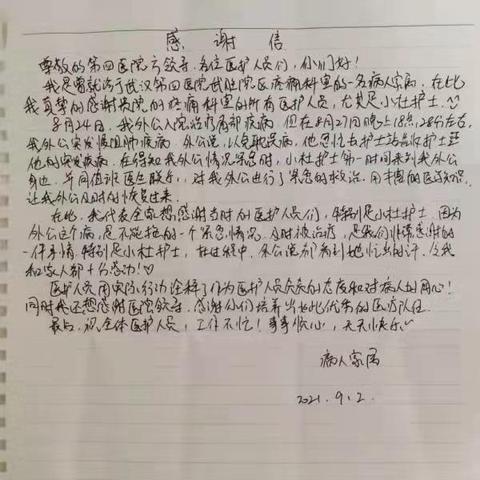 感谢信
尊敬的第四医院亏领导.各位医护人员们，你们好！
我是曾就诊于武汉第四医院武胜院区疼痛科室的一名病人家属，在此
我真挚的感谢贵院的疼痛科室的所有医护人员，尤其是小杜护士.
8月24日，我外公入院治疗肩部疾病，但在8月27日晚上18点28分左右，
我外公突发慢阻肺疾病，外公说，以免耽误病，他急忙去护士站告收护士
他的突发疾病，在得知我外公情况紧急时，小杜护士第一时间来到我外公
身边，并同值班医生联系，对我外公进行了紧急的救治，用丰富的医疗知识，
让我外公及时的恢复过来.
在此，我代表全家想感谢当时的医护人员们，特别是小杜护士，因为
外公这个病，是不能拖的一个紧急情况，及时被治疗，是我们非常感谢的
一件事情.特别是小杜护士，在过程中，外公说都病到她忙出的汗，令我
和家人都十分感动！♡
医护人员用实际行动诠释了作为医护人员负责的态度和对病人的用心！
同时我还想感谢医院领导，感谢你们培养出如此优秀的医疗队伍
最后，祝全体医护人员，工作不忙！事事顺心，天天快乐
病人家属
2021.9.2.